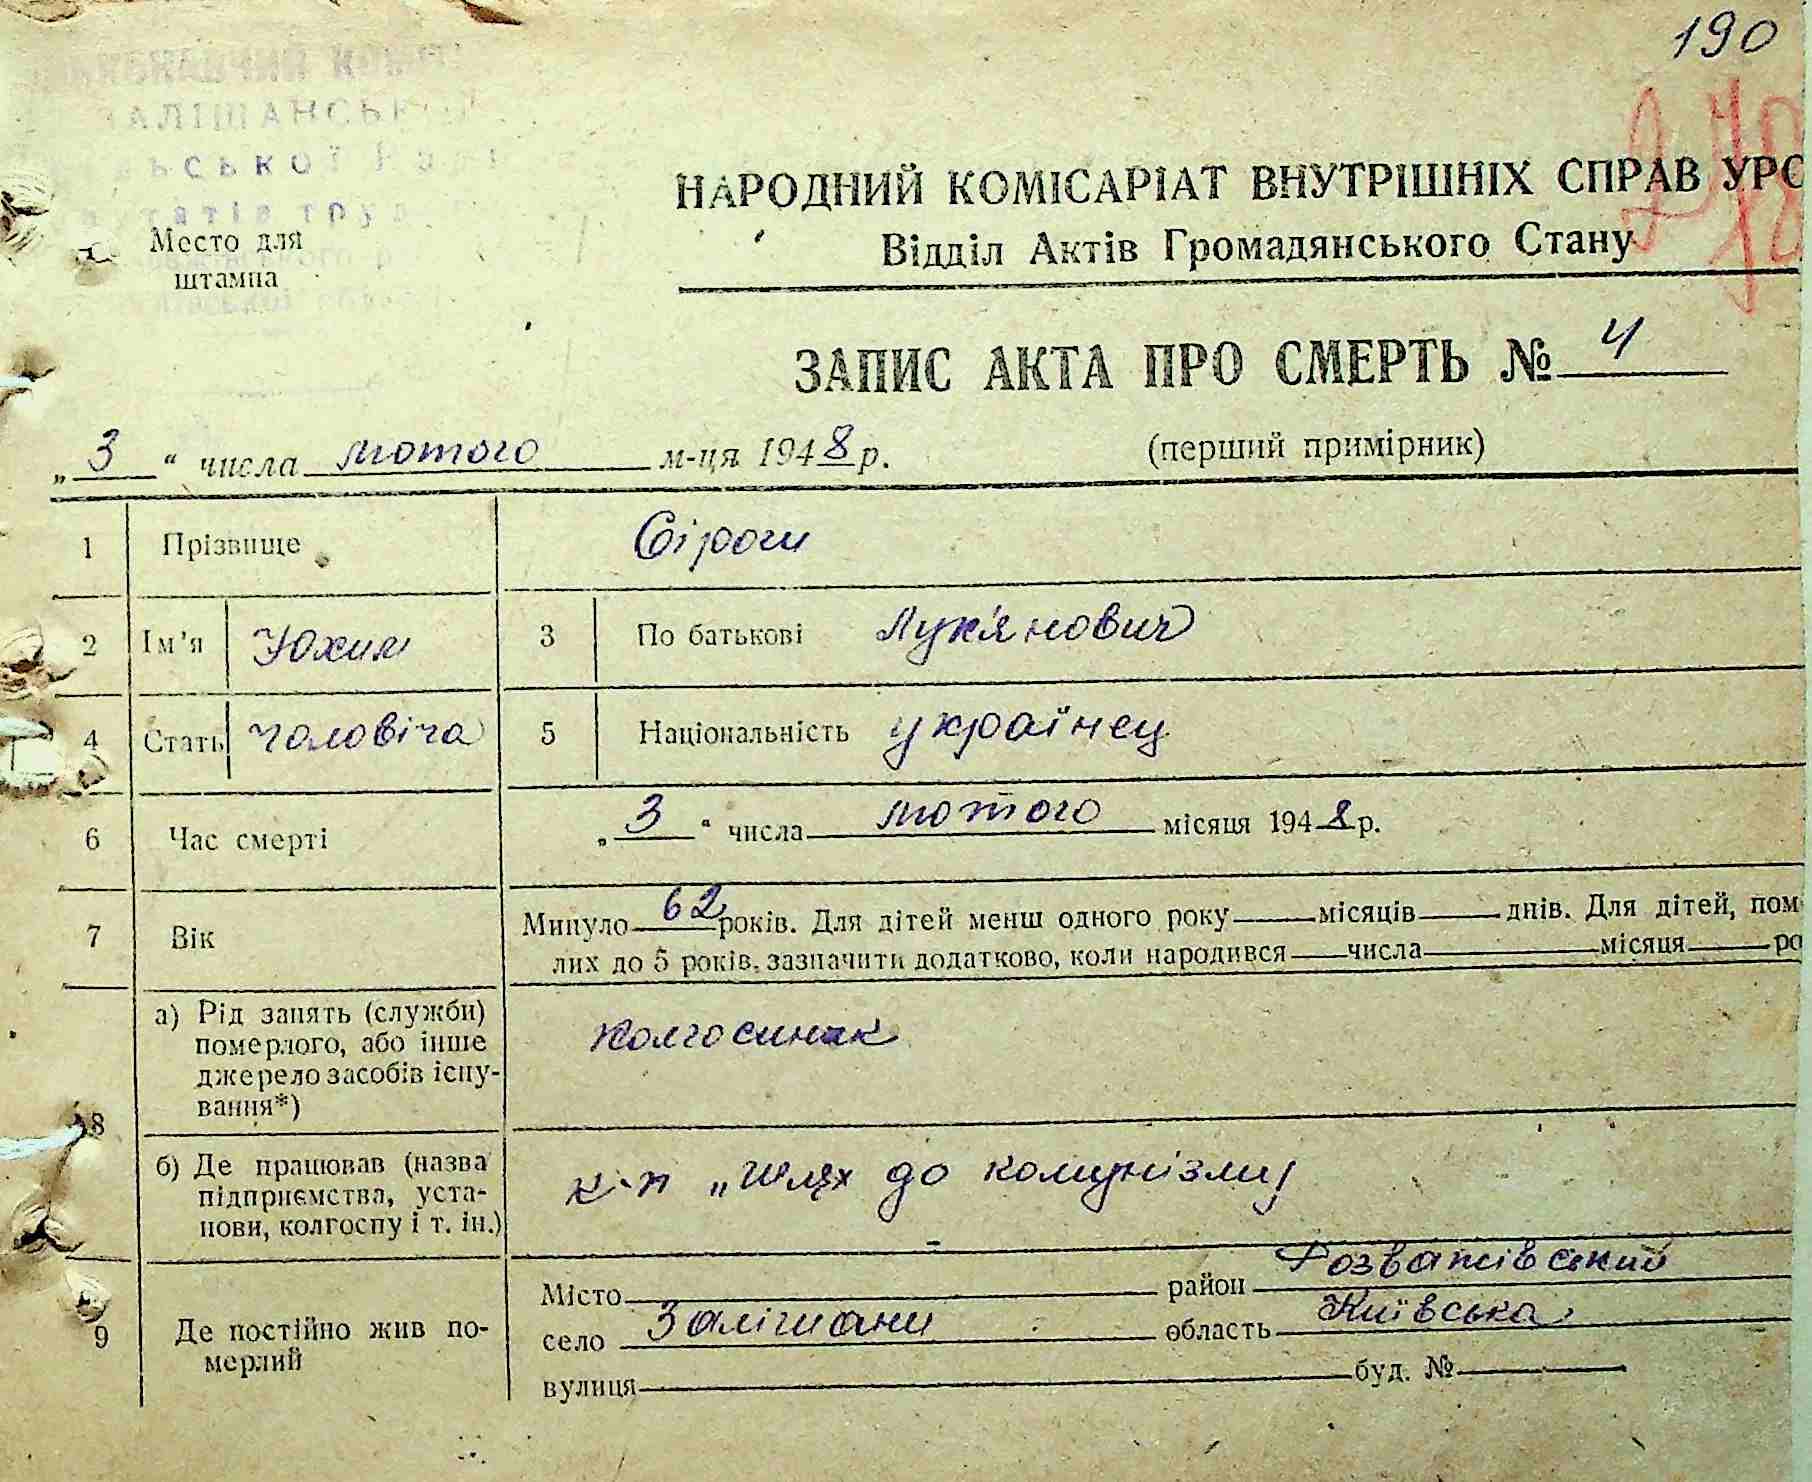 190
ЗАЛІШАНСЬКОЇ
Место для
штампа
НАРОДНИЙ КОМІСАРІАТ ВНУТРІШНІХ СПРАВ УРС
Відділ Актів Громадянського Стану
ЗАПИС АКТА ПРО СМЕРТЬ № 4
„3“ числа лютого м-ця 1948 р. (перший примірник)
1 Прізвище Сіроги
2 Ім’я Юхим 3 По батькові Лук'янович
4 Стать чоловіча 5 Національність українец
6 Час смерті „3“ числа лютого місяця 1948 р.
7 Вік Минуло 62 років. Для дітей менш одного року місяців днів. Для дітей, пом
лих до 5 років, зазначити додатково, коли народився числа місяця ро
8 а) Рід занять (служби)
померлого, або інше
джерело засобів існу-
вання*)
колгоспник
б) Де працював (назва
підприємства, уста-
нови, колгоспу і т. ін.)
к-п „Шлях до комунізму
9 Де постійно жив по-
мерлий
Місто район Розважівський
село Залішани область Київська
вулиця буд. №